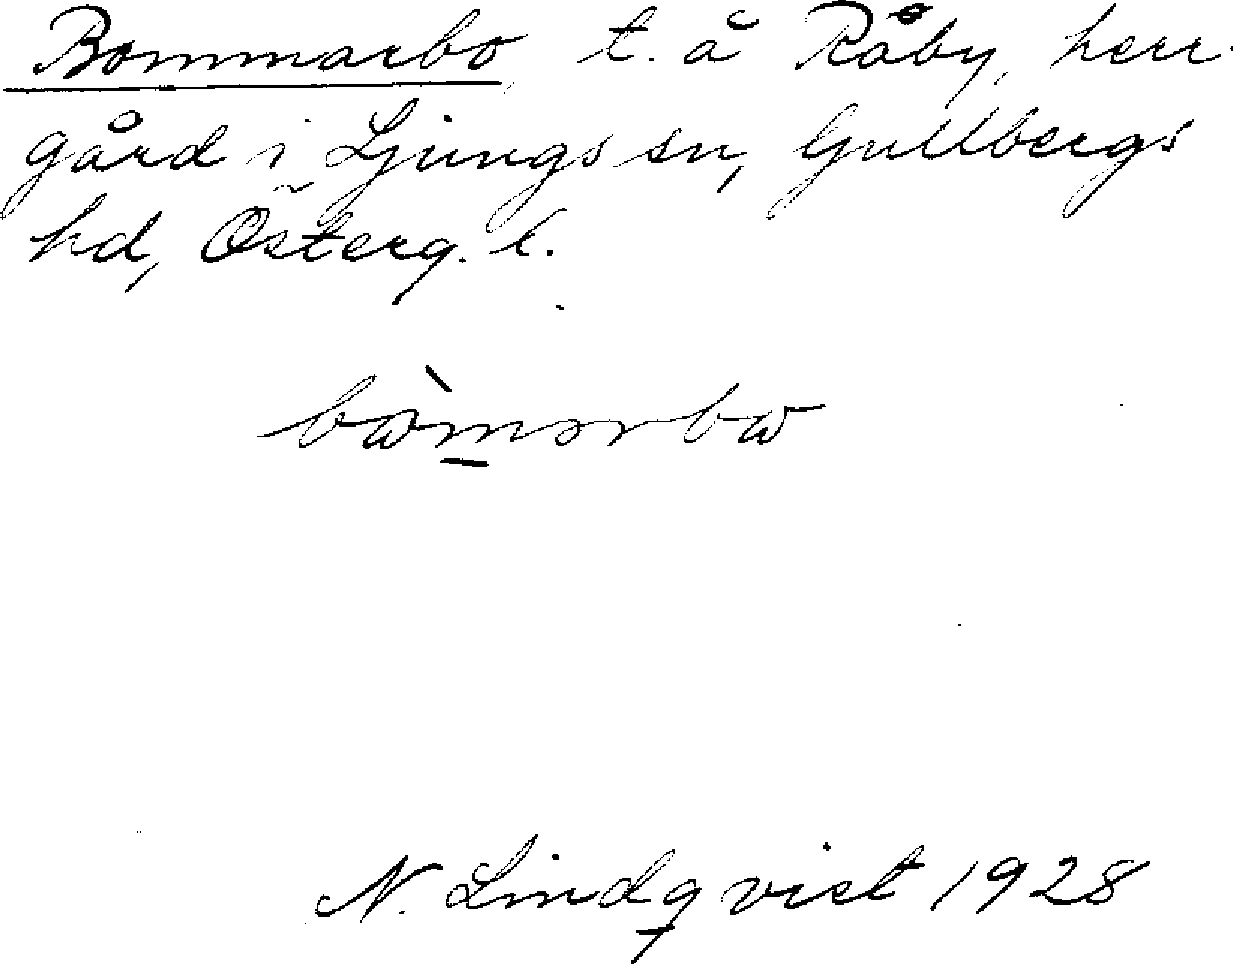 Bommarbo, t. å Råby, herr-
gård i Ljungs sn, Gullbergs
hd, Österg. l.
N. Lindqvist 1928